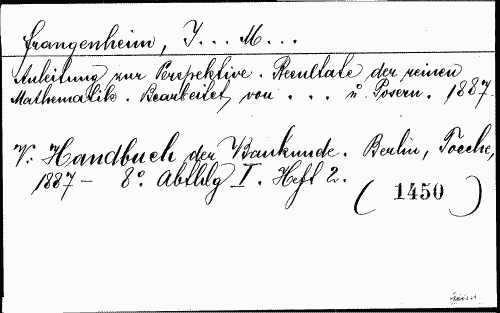 Frangenheim, J... M...
Anleitung zur Perspektive. Resultate der reinen
Mathematik. Bearbeitet von ... u. Posern. 1887.
V. Handbuch der Baukunde. Berlin, Toeche,
1887 — 8º. Abthlg I. Heft 2.
(1450)